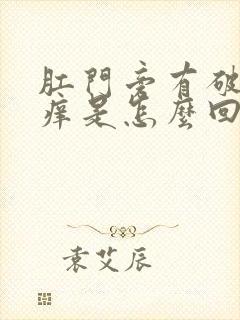 肛門旁有破
痒是怎麼回
袁艾辰